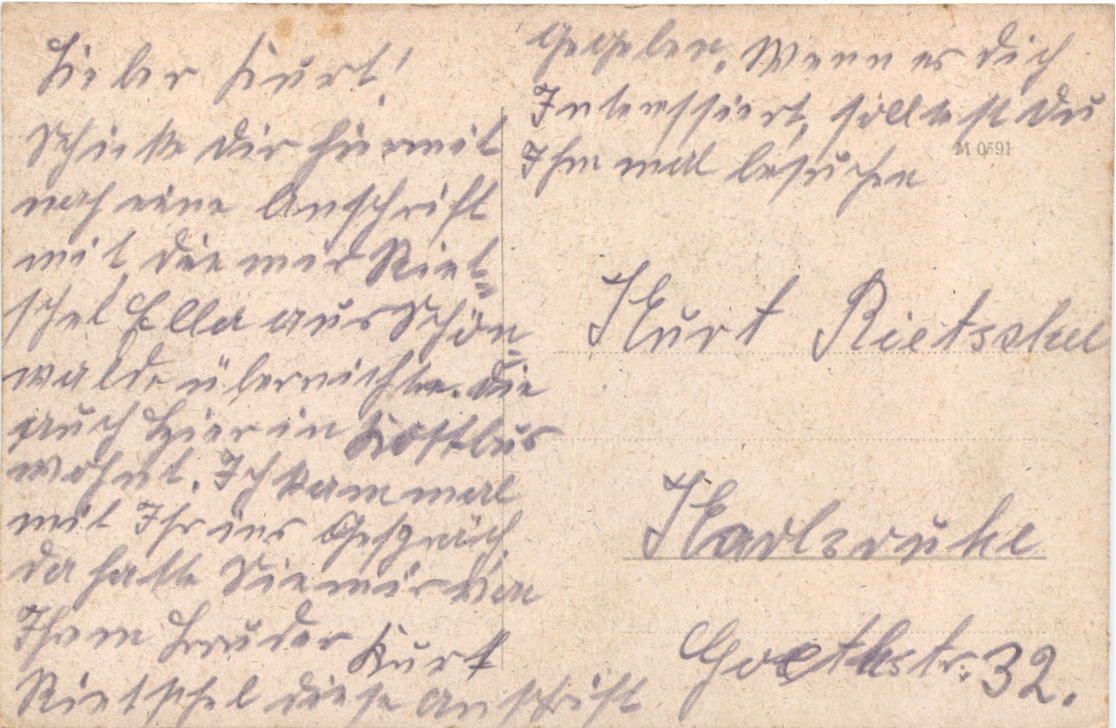 Lieber Kurt!
Schicke dir hiermit
noch eine Anschrift
mit, die mir Riet-
schel Ella aus Schön-
walde überreichte. die
auch hier in Kottbus
wohnt. Ich kam mal
mit Ihr ins Gespräch,
da hatte Sie mir von
Ihrem Bruder Kurt
Rietschel diese Anschrift
gegeben. Wenn es dich
Interessiert, solltest du
Ihm mal besuchen
M 0591
Kurt Rietschel
Karlsruhe
Goethestr. 32.